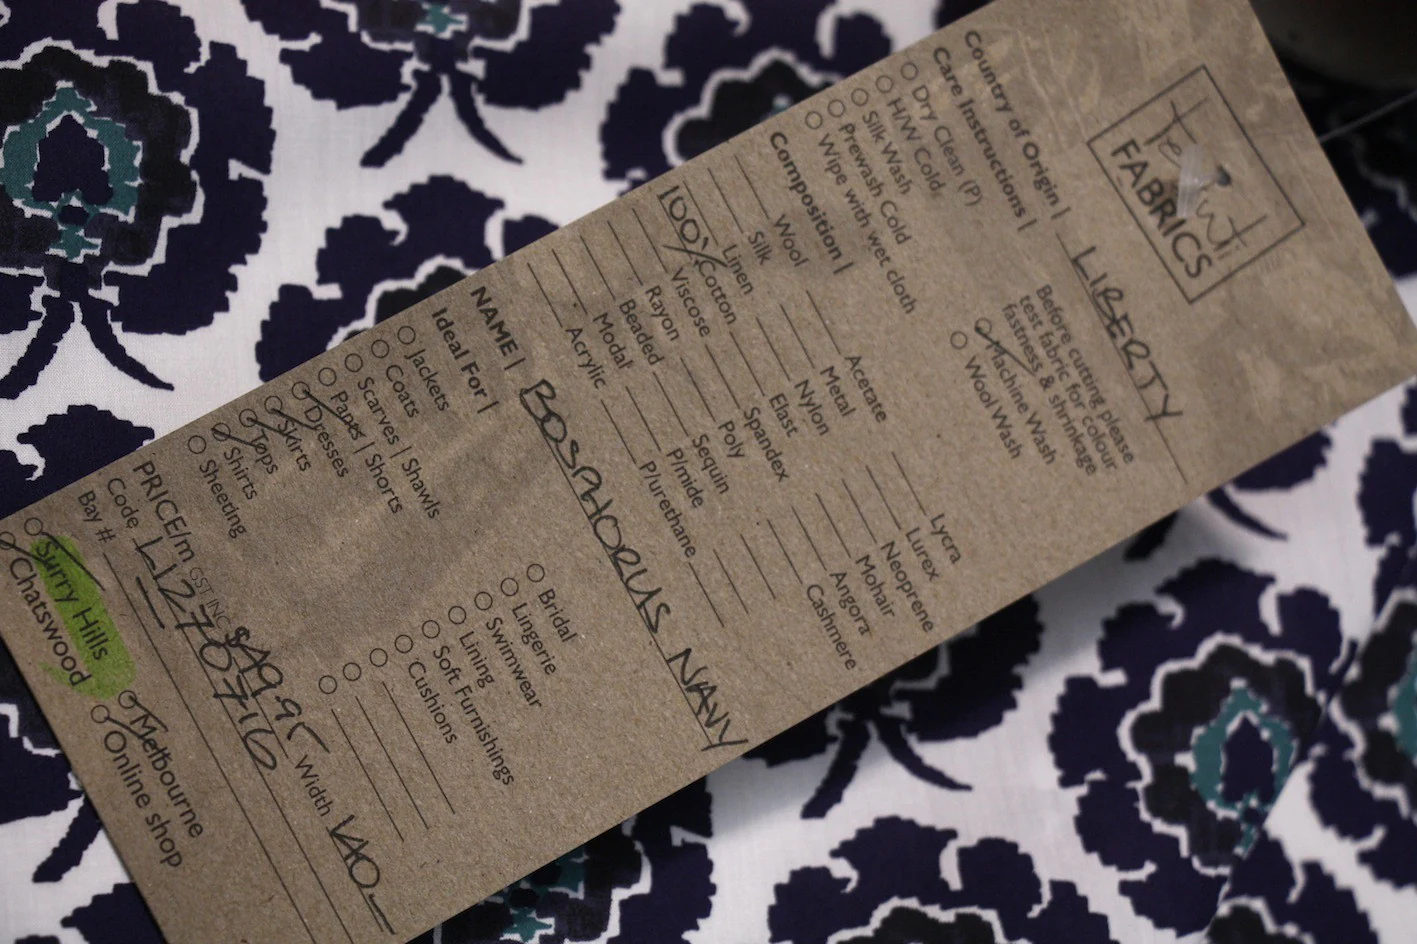 Tessuti
FABRICS
Country of Origin | LIBERTY
Care Instructions |
Before cutting please
test fabric for colour
fastness & shrinkage
Dry Clean (P)
H/W Cold
Silk Wash
Prewash Cold
Wipe with wet cloth
Machine Wash
Wool Wash
Composition |
Wool
Silk
Linen
100% Cotton
Viscose
Rayon
Beaded
Modal
Acrylic
Acetate
Metal
Nylon
Elast
Spandex
Poly
Sequin
P/mide
P/urethane
Lycra
Lurex
Neoprene
Mohair
Angora
Cashmere
NAME | BOSPHORUS NAVY
Ideal For |
Jackets
Coats
Scarves | Shawls
Papes | Shorts
Dresses
Skirts
Tops
Shirts
Sheeting
Bridal
Lingerie
Swimwear
Lining
Soft Furnishings
Cushions
PRICE/m GST INC $49.95 Width 140
Code L1270716
Bay #
Surry Hills
Chatswood
Melbourne
Online shop